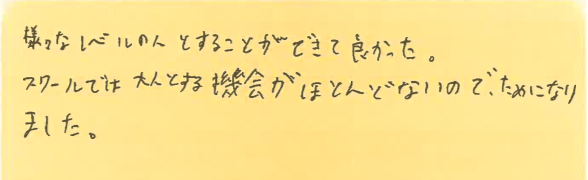 様々なレベルの人とすることができて良かった。
スクールでは大人とする機会がほとんどないので、ためになり
ました。